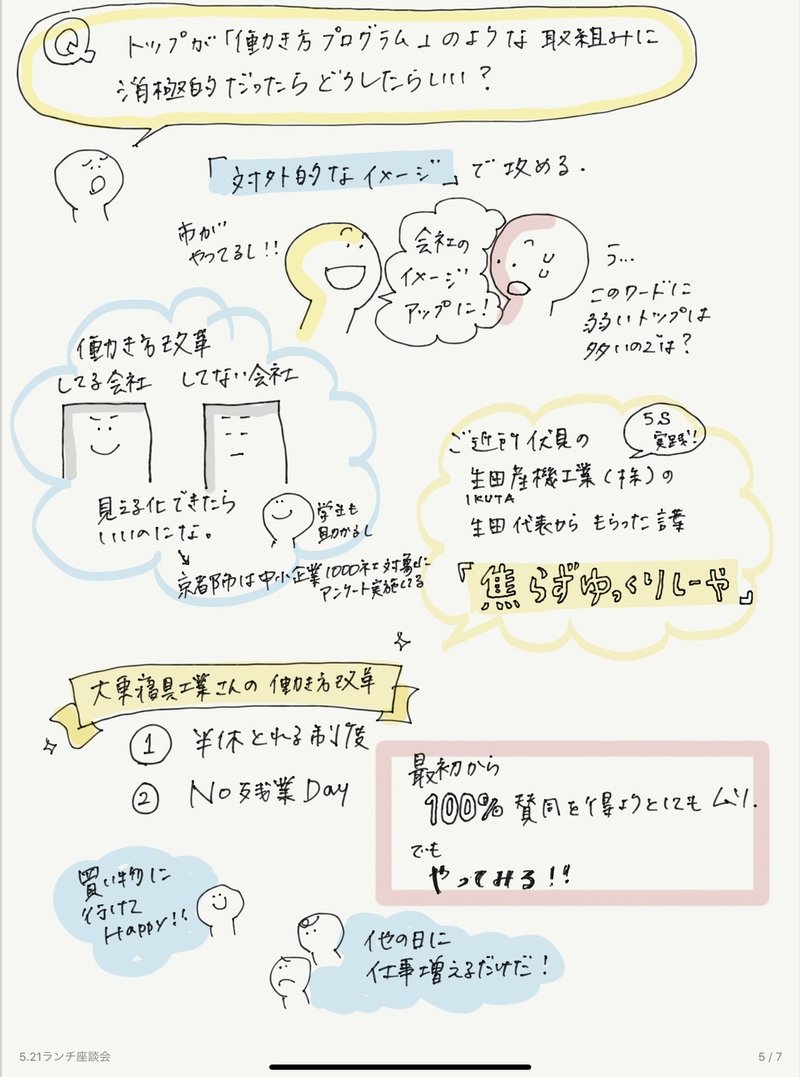 Q
トップが「働き方プログラム」のような取組みに
消極的だったらどうしたらいい？
「対外的なイメージ」で攻める.
市が
やってるし!!
会社の
イメージ
アップに!
う…
このワードに
弱いトップは
多いのでは？
働き方改革
してる会社 してない会社
見える化できたら
いいのにな。
学生も
助かるし
京都市は中小企業1000社対象に
アンケート実施してる
5S
実践!
ご近所伏見の
生田産機工業(株)の
IKUTA
生田代表からもらった言葉
「焦らずゆっくりしーや」
大東寝具工業さんの働き方改革
① 半休とれる制度
② No残業Day
最初から
100%賛同を得ようとしてもムリ.
でも
やってみる!!
買い物に
行けて
Happy!!
他の日に
仕事増えるだけだ!
5.21ランチ座談会
5 / 7